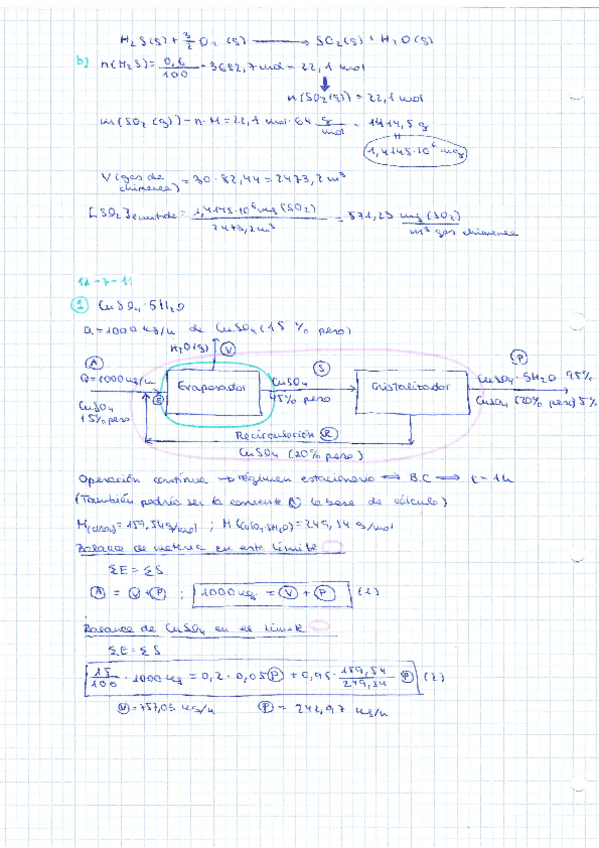 H₂S(g) + 3/2 O₂(g) ⟶ SO₂(g) + H₂O(g)
b) n(H₂S) = 0,6/100 · 3682,7 mol = 22,1 mol
n(SO₂(g)) = 22,1 mol
m(SO₂(g)) = n·M = 22,1 mol · 64 g/mol = 1414,5 g
1,4145·10⁶ mg
V(gas de chimenea) = 30·82,44 = 2473,2 m³
[SO₂]emitida = 1,4145·10⁶ mg (SO₂)/2473,2 m³ = 571,23 mg (SO₂)/m³ gas chimenea
12-7-11
① CuSO₄·5H₂O
Q = 1000 kg/h de CuSO₄ (15 % peso)
H₂O(g) Ⓥ
Ⓐ
Q = 1000 kg/h
CuSO₄
15% peso
Ⓔ
Evaporador
Ⓢ
CuSO₄
45% peso
Cristalizador
Ⓟ
CuSO₄·5H₂O 95%
CuSO₄ (20% peso) 5%
Recirculación Ⓡ
CuSO₄ (20% peso)
Operación continua → régimen estacionario ⟹ B.C ⟹ t = 1h
(También podría ser la corriente Ⓐ la base de cálculo)
M(CuSO₄) = 159,54 g/mol ; M(CuSO₄·5H₂O) = 249,54 g/mol
Balance de materia en este límite
ΣE = ΣS
Ⓐ = Ⓥ + Ⓟ ; 1000 kg = Ⓥ + Ⓟ (1)
Balance de CuSO₄ en el límite
ΣE = ΣS
15/100 · 1000 kg = 0,2 · 0,05 Ⓟ + 0,95 · 159,54/249,54 Ⓟ (2)
Ⓥ = 757,03 kg/h Ⓟ = 242,97 kg/h